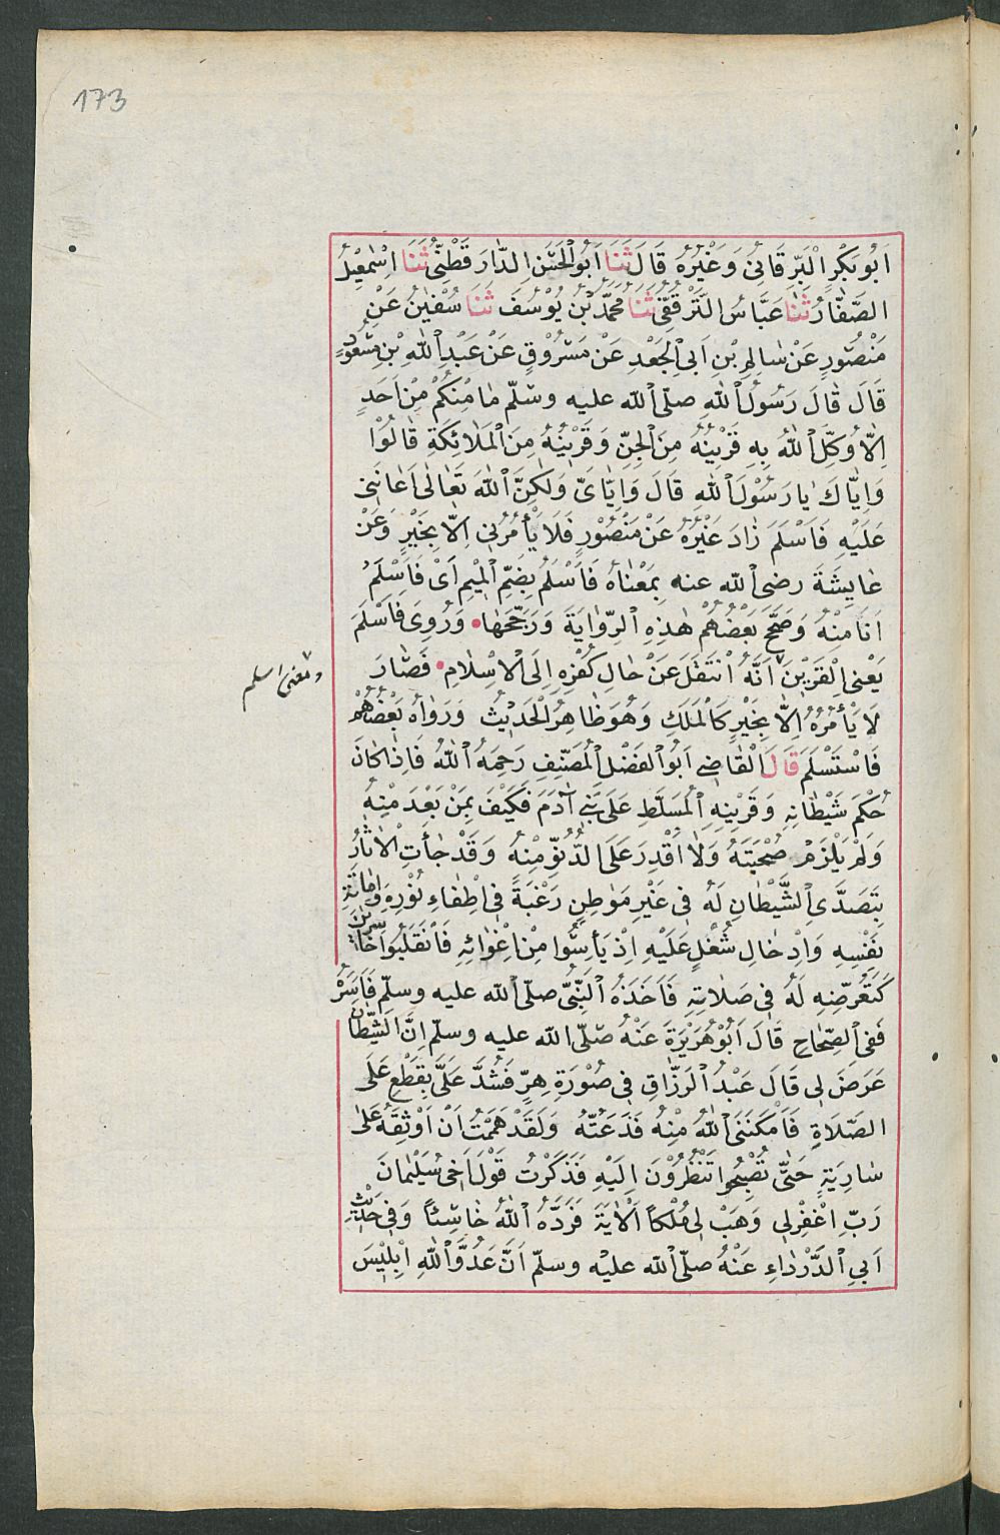 173
اَبُو بَكْرٍ الْبَرِّقَانِيُّ وَغَيْرُهُ قَالَ ثَنَا اَبُو الْحَسَنِ الدَّارَقَطْنِيُّ ثَنَا اِسْمٰعِيْلُ
الصَّفَّارُ ثَنَا عَبَّاسُ التَّرْقُفِيُّ ثَنَا مُحَمَّدُ بْنُ يُوْسُفَ ثَنَا سُفْيٰنُ عَنْ
مَنْصُورٍ عَنْ سَالِمِ بْنِ اَبِي الْجَعْدِ عَنْ مَسْرُوْقٍ عَنْ عَبْدِ اللّٰهِ بْنِ مَسْعُودٍ
قَالَ قَالَ رَسُولُ اللّٰهِ صلّى الله عليه وسلّم مَا مِنْكُمْ مِنْ اَحَدٍ
اِلَّا وُكِّلَ اللّٰهُ بِهِ قَرْيِنُهُ مِنَ الْجِنِّ وَقَرْيِنُهُ مِنَ الْمَلَائِكَةِ قَالُوْا
وَاِيَّاكَ يَا رَسُوْلَ اللّٰهِ قَالَ وَاِيَّايَ وَلٰكِنَّ اللّٰهَ تَعَالٰى اَعَانَنِي
عَلَيْهِ فَاَسْلَمَ زَادَ غَيْرُهُ عَنْ مَنْصُوْرٍ فَلَا يَأْمُرُنِي اِلَّا بِخَيْرٍ وَعَنْ
عَايِشَةَ رضى الله عنه بِمَعْنَاهُ فَاَسْلَمُ بِضَمِّ الْمِيْمِ اَىْ فَاَسْلَمُ
اَنَا مِنْهُ وَصَحَّحَ بَعْضُهُمْ هٰذِهِ الرِّوَايَةَ وَرَجَّحَهَا • وَرُوِىَ فَاَسْلَمَ
يَعْنِى الْقَرْيِنَ اَنَّهُ انْتَقَلَ عَنْ حَالِ كُفْرِهِ اِلَى الْاِسْلَامِ • فَصَارَ
ومعنى اسلم
لَا يَأْمُرُهُ اِلَّا بِخَيْرٍ كَالْمَلَكِ وَهُوَ ظَاهِرُ الْحَدِيْثِ وَرَوَاهُ بَعْضُهُمْ
فَاسْتَسْلَمَ قَالَ الْقَاضِى اَبُو الْفَضْلِ الْمُصَنِّفِ رَحِمَهُ اللّٰهُ فَاِذَا كَانَ
حُكْمَ شَيْطَانِهِ وَقَرْيِنِهِ الْمُسَلَّطِ عَلَى بَنِي آدَمَ فَكَيْفَ بِمَنْ بَعْدَ مِنْهُ
وَلَمْ يَلْزَمْ صُحْبَتَهُ وَلَا اَقْدِرَ عَلَى الدُّنُوِّ مِنْهُ وَقَدْ جَأَتِ الْاٰثَارُ
بِتَصَدِّى الشَّيْطَانِ لَهُ فِى غَيْرِ مَوْطِنٍ رَغْبَةً فِى اِطْفَاءِ نُوْرِهِ وَاِمَاتَةِ
نَفْسِهِ وَاِدْخَالِ شُغْلٍ عَلَيْهِ اِذْ يَأَسُّوا مِنْ اِغْوَائِهِ فَانْقَلَبُوا خَاسِرِيْنَ
كَتَعَرُّضِهِ لَهُ فِى صَلَاتِهِ فَاَخَذَهُ النَّبِىُّ صلّى الله عليه وسلّم فَاَسَرَهُ
فَفِى الصِّحَاحِ قَالَ اَبُوْ هُرَيْرَةَ عَنْهُ صلّى الله عليه وسلّم اِنَّ الشَّيْطَانَ
عَرَضَ لِى قَالَ عَبْدُ الرَّزَّاقِ فِى صُوْرَةِ هِرٍّ فَشَدَّ عَلَىَّ بِقَطْعٍ عَلَى
الصَّلَاةِ فَاَمْكَنَنِىَ اللّٰهُ مِنْهُ فَدَعَتُّهُ وَلَقَدْ هَمَمْتُ اَنْ اُوْثِقَهُ عَلَى
سَارِيَةٍ حَتَّى تُصْبِحُوا تَنْظُرُوْنَ اِلَيْهِ فَذَكَرْتُ قَوْلَ اَخِى سُلَيْمَانَ
رَبِّ اغْفِرْلِى وَهَبْ لِى مُلْكاً الْاٰيَةَ فَرَدَّهُ اللّٰهُ خَاسِئاً وَفِى حَدِيْثِ
اَبِى الدَّرْدَاءِ عَنْهُ صلّى الله عليه وسلّم اَنَّ عَدُوَّ اللّٰهِ اِبْلِيْسَ